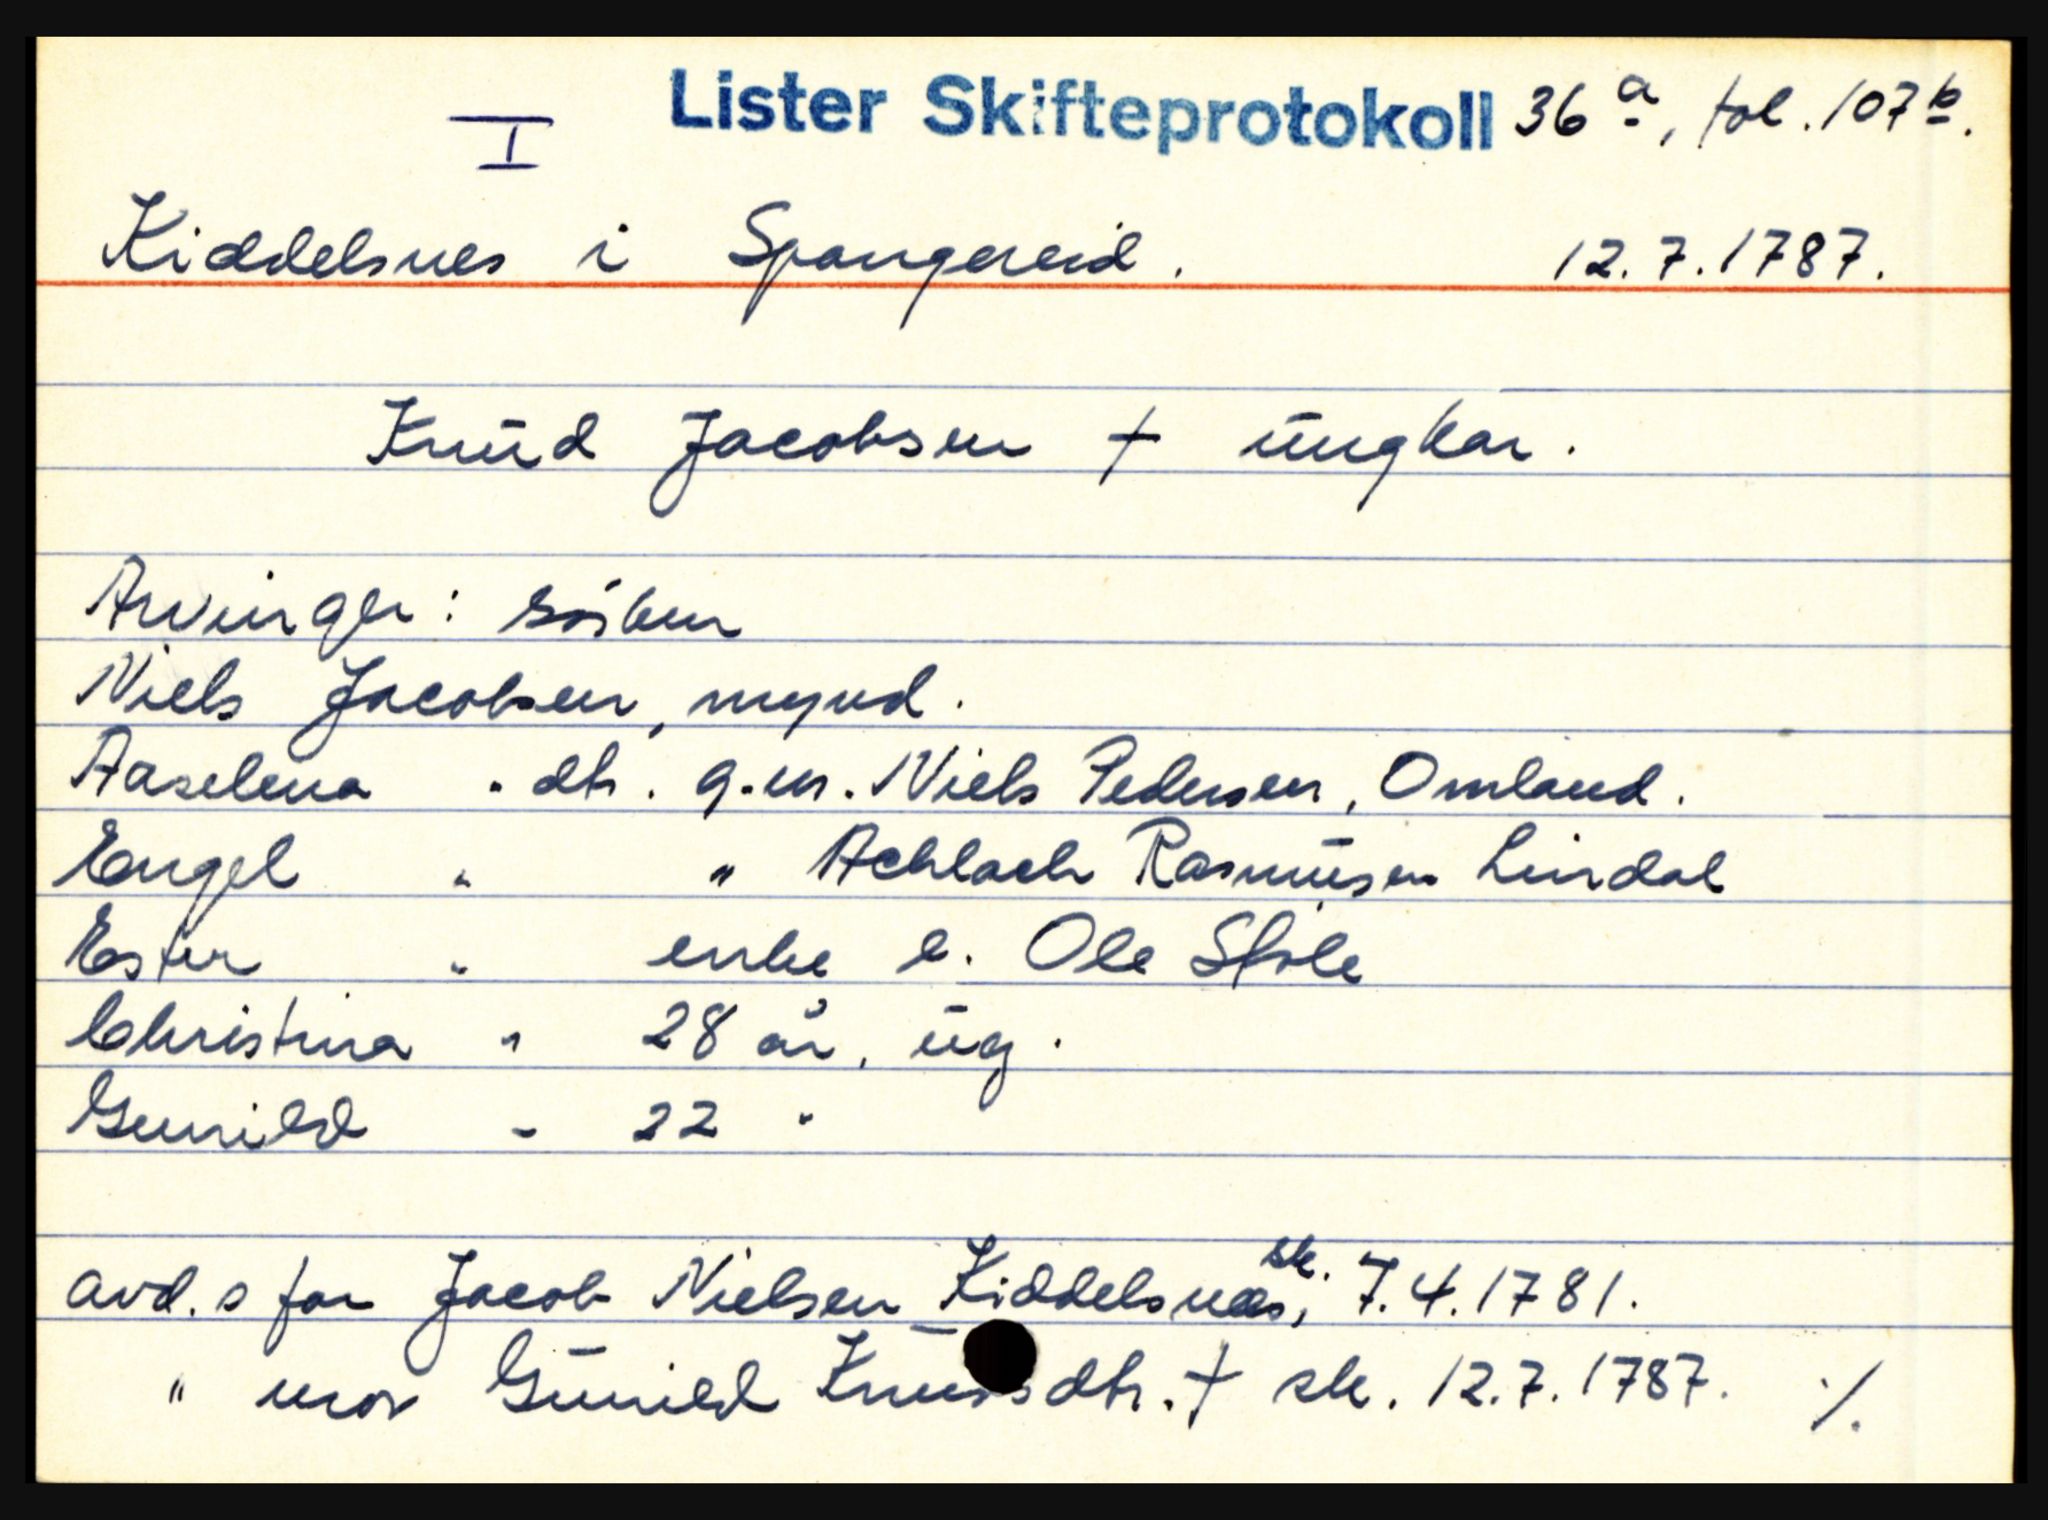 I Lister Skifteprotokoll 36 a, fol. 107 b.
Kiddelsnes i Spangereid. 12.7.1787.
Knud Jacobsen † ungkar.
Arvinger: søsken
Niels Jacobsen, mynd.
Aaselena " dtr. g.m. Niels Pedersen, Omland.
Engel " " Achlach Rasmusen Lindal
Ester " enke e. Ole
Christina " 28 år, ug.
Gunild " 22 "
avd.s far Jacob Nielsen Kiddelsnæs, sk. 7.4.1781.
" mor Gunild Knudsdtr. † sk. 12.7.1787. ./.